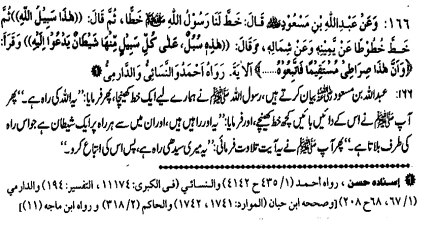 ١٦٦: وَعَنْ عَبْدِاللَّهِ بْنِ مَسْعُودٍ ﷺ قَالَ: خَطَّ لَنَا رَسُوْلُ اللَّهِ ﷺ خَطًّا، ثُمَّ قَالَ: ((هٰذَا سَبِيْلُ اللَّهِ)) ثُمَّ
خَطَّ خُطُوْطًا عَنْ يَّمِيْنِهِ وَعَنْ شِمَالِهِ، وَقَالَ: ((هٰذِهِ سُبُلٌ، عَلٰى كُلِّ سَبِيْلٍ مِّنْهَا شَيْطَانٌ يَدْعُوْا إِلَيْهِ)) وَقَرَأَ:
﴿وَأَنَّ هٰذَا صِرَاطِيْ مُسْتَقِيْمًا فَاتَّبِعُوْهُ ......﴾ اَلْآيَةَ. رَوَاهُ أَحْمَدُ وَالنَّسَائِيُّ وَالدَّارِمِيُّ ❶
١٦٦: عبداللہ بن مسعود بیان کرتے ہیں، رسول اللہ ﷺ نے ہمارے لیے ایک خط کھینچا، پھر فرمایا: ”یہ اللہ کی راہ ہے۔“ پھر
آپ ﷺ نے اس کے دائیں بائیں کچھ خط کھینچے، اور فرمایا: ”یہ اور راہیں ہیں، اور ان میں سے ہر راہ پر ایک شیطان ہے جو اس راہ
کی طرف بلاتا ہے۔“ پھر آپ ﷺ نے یہ آیت تلاوت فرمائی: ”یہ میری سیدھی راہ ہے، پس اس کی اتباع کرو۔“
❶ إسناده حسن، رواه أحمد (١/ ٤٣٥ ح ٤١٤٢) والنسائي (في الكبرى: ١١١٧٤، التفسير: ١٩٤) والدارمي
(١/ ٦٧، ٦٨ ح ٢٠٨) [وصححه ابن حبان (الموارد: ١٧٤١، ١٧٤٢) والحاكم (٢/ ٣١٨) و رواه ابن ماجه (١١)]